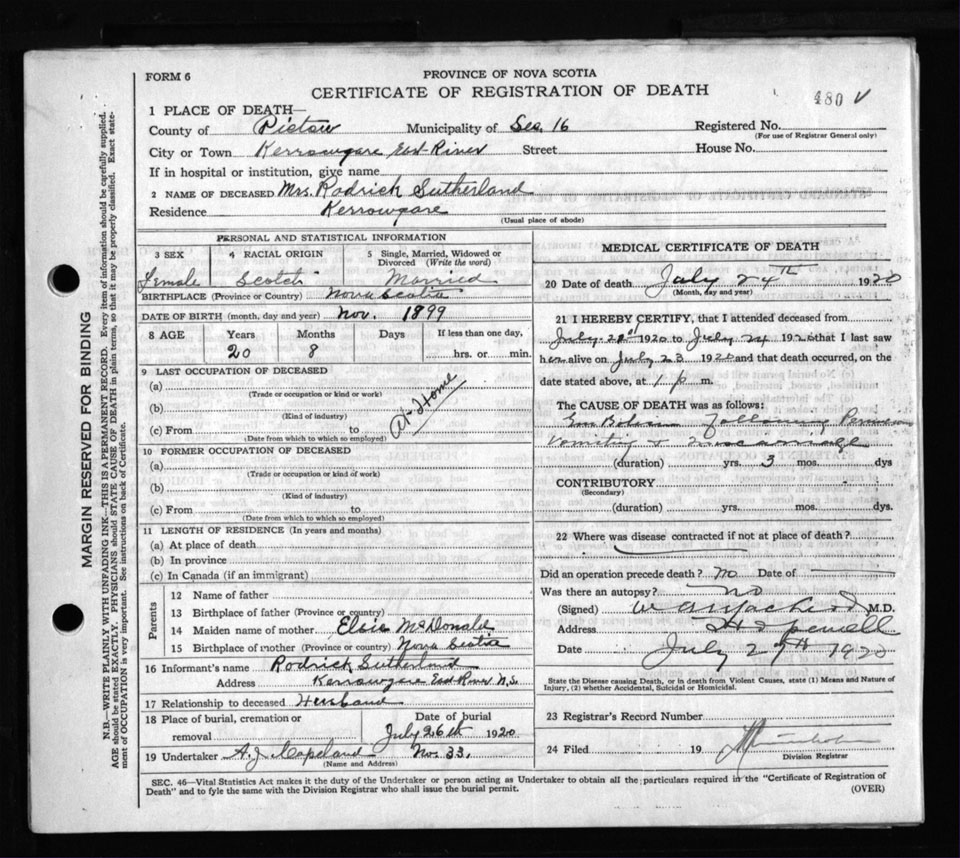 FORM 6
PROVINCE OF NOVA SCOTIA
CERTIFICATE OF REGISTRATION OF DEATH
480 V
1 PLACE OF DEATH—
County of Pictou Municipality of Sec. 16 Registered No.
(For use of Registrar General only)
City or Town Kerrowgare East River Street House No.
If in hospital or institution, give name
2 NAME OF DECEASED Mrs. Rodrick Sutherland
Residence Kerrowgare
(Usual place of abode)
PERSONAL AND STATISTICAL INFORMATION
3 SEX 4 RACIAL ORIGIN 5 Single, Married, Widowed or Divorced (Write the word)
Female Scotch Married
BIRTHPLACE (Province or Country) Nova Scotia
DATE OF BIRTH (month, day and year) Nov. 1899
8 AGE Years Months Days If less than one day,
20 8 hrs. or min.
9 LAST OCCUPATION OF DECEASED
(a)
(Trade or occupation or kind of work)
(b)
(Kind of industry)
At Home
(c) From to
(Date from which to which so employed)
10 FORMER OCCUPATION OF DECEASED
(a)
(Trade or occupation or kind of work)
(b)
(Kind of industry)
(c) From to
(Date from which to which so employed)
11 LENGTH OF RESIDENCE (In years and months)
(a) At place of death
(b) In province
(c) In Canada (if an immigrant)
Parents
12 Name of father
13 Birthplace of father (Province or country)
14 Maiden name of mother Elsie McDonald
15 Birthplace of mother (Province or country) Nova Scotia
16 Informant's name Rodrick Sutherland
Address Kerrowgare East River N.S.
17 Relationship to deceased Husband
18 Place of burial, cremation or removal
Date of burial
July 26th 1920
19 Undertaker A. J. Copeland No. 33.
(Name and Address)
MEDICAL CERTIFICATE OF DEATH
20 Date of death July 24TH 1920
(Month, day and year)
21 I HEREBY CERTIFY, that I attended deceased from
July 1920 to July 24 1920 that I last saw
her alive on July 23 1920 and that death occurred, on the
date stated above, at 1 p m.
The CAUSE OF DEATH was as follows:
Embolism following Pernicious
Vomiting & miscarriage
(duration) yrs. 3 mos. dys
CONTRIBUTORY
(Secondary)
(duration) yrs. mos. dys.
22 Where was disease contracted if not at place of death?
Did an operation precede death? No Date of
Was there an autopsy? No
(Signed) M.D.
Address Hopewell
Date July 27th 1920
State the Disease causing Death, or in death from Violent Causes, state (1) Means and Nature of
Injury, (2) whether Accidental, Suicidal or Homicidal.
23 Registrar's Record Number
24 Filed 19
Division Registrar
SEC. 46—Vital Statistics Act makes it the duty of the Undertaker or person acting as Undertaker to obtain all the particulars required in the "Certificate of Registration of
Death" and to fyle the same with the Division Registrar who shall issue the burial permit.
(OVER)
MARGIN RESERVED FOR BINDING
N.B.—WRITE PLAINLY WITH UNFADING INK—THIS IS A PERMANENT RECORD. Every item of information should be carefully supplied.
AGE should be stated EXACTLY. PHYSICIANS should STATE CAUSE OF DEATH in plain terms, so that it may be properly classified. Exact state-
ment of OCCUPATION is very important. See instructions on back of Certificate.